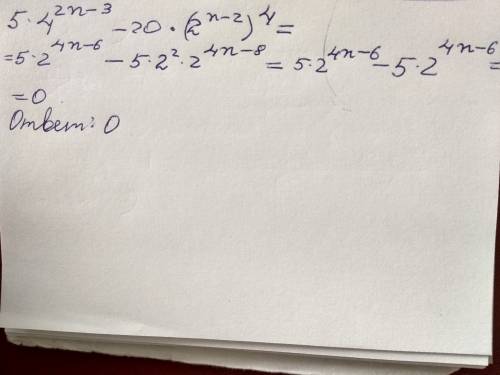 5·4^{2n-3} - 20·(2^{n-2})^4 =
= 5·2^{4n-6} - 5·2^2·2^{4n-8} = 5·2^{4n-6} - 5·2^{4n-6} =
= 0
Ответ: 0